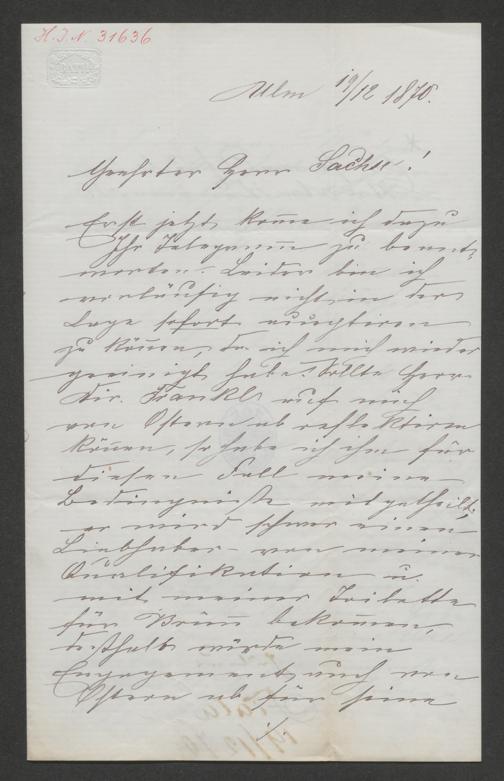 H. I. N. 31636
BATH
Ulm 19/12 1870.
Geehrter Herr Sachse!
Erst jetzt komme ich dazu
Ihr Telegramm zu beant-
worten. Leider bin ich
vorläufig nicht in der
Lage sofort
zu können, da ich mich wieder
geeinigt habe. Sollte Herr
Dir. Frankl auf mich
von Ostern ab reflektiren
können, so habe ich ihm für
diesen Fall meine
Bedingnisse mitgetheilt,
er wird schwer einen
Liebhaber von meiner
Qualifikation u.
mit meiner
für Brünn bekommen,
deßhalb würde mein
Engagement auch von
Ostern ab für seine